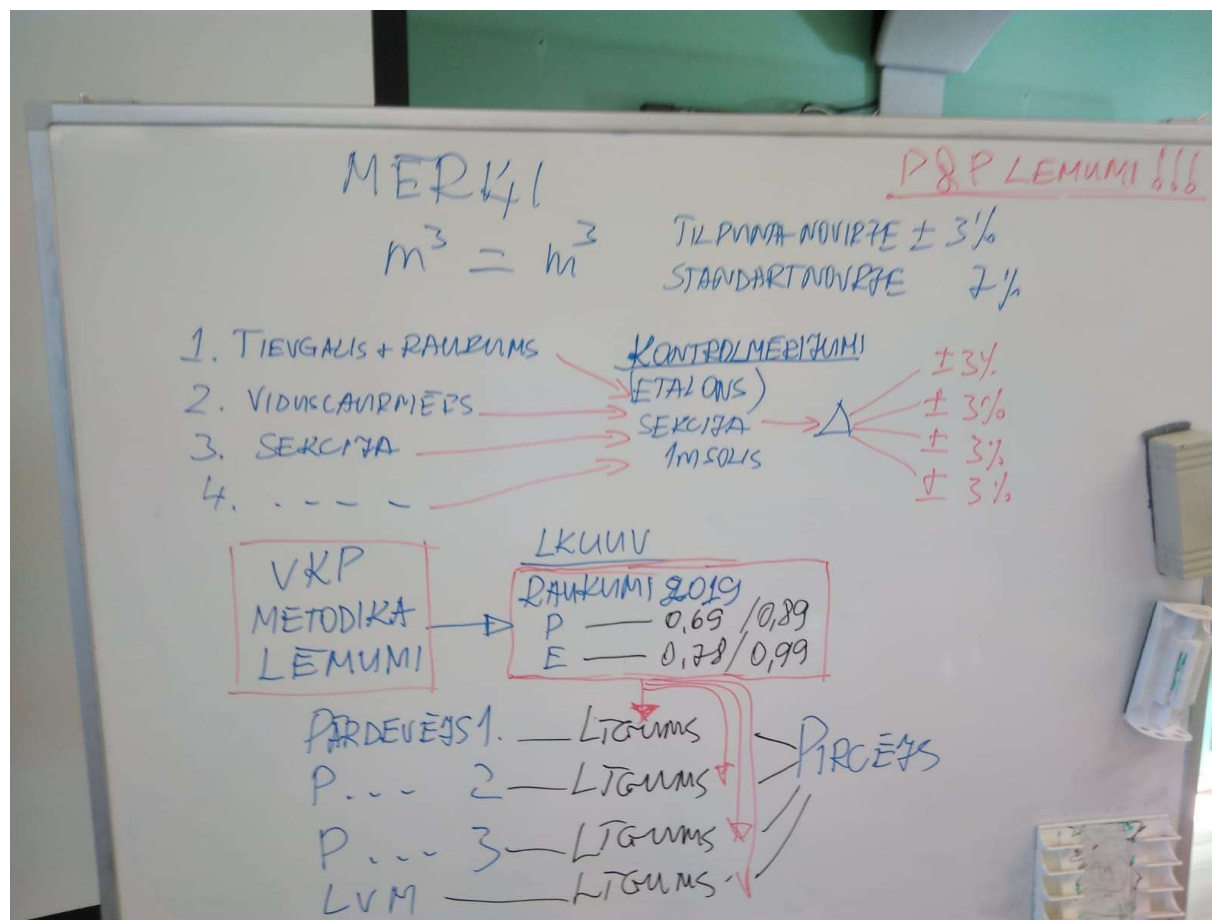 MERĶI
P&P LEMUMI !!!
m³ = m³
TILPUMA NOVIRZE ± 3%
STANDARTNOVIRZE 7%
1. TIEVGALIS + RAUKUMS
2. VIDUSCAURMĒRS
3. SEKCIJA
4. - - - -
KONTROLMERIJUMI
(ETALONS)
SEKCIJA
1m SOLIS
Δ
± 3%
± 3%
± 3%
± 3%
VKP
METODIKA
LEMUMI
LKUUV
RAUKUMI 2019
P — 0,69 / 0,89
E — 0,78 / 0,99
PĀRDEVEJS 1. — LĪGUMS
P... 2 — LĪGUMS
P... 3 — LĪGUMS
LVM — LĪGUMS
PIRCĒJS